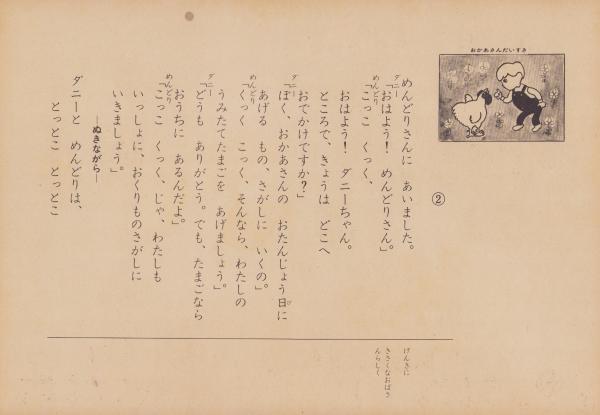 おかあさんだいすき
②
めんどりさんに　あいました。
ダニー
「おはよう！　めんどりさん」
めんどり
「こっこ　くっく、
おはよう！　ダニーちゃん。
ところで、きょうは　どこへ
おでかけですか？」
ダニー
「ぼく、おかあさんの　おたんじょう日に
び
あげる　もの、さがしに　いくの」。
めんどり
「くっく　こっく、そんなら、わたしの
うみたてたまごを　あげましょう」。
ダニー
「どうも　ありがとう。でも、たまごなら
おうちに　あるんだよ」。
めんどり
「こっこ　くっく、じゃ、わたしも
いっしょに、おくりものさがしに
いきましょう」。
―ぬきながら―
ダニーと　めんどりは、
とっとこ　とっとこ
げんきに
きさくなおばさ
んらしく